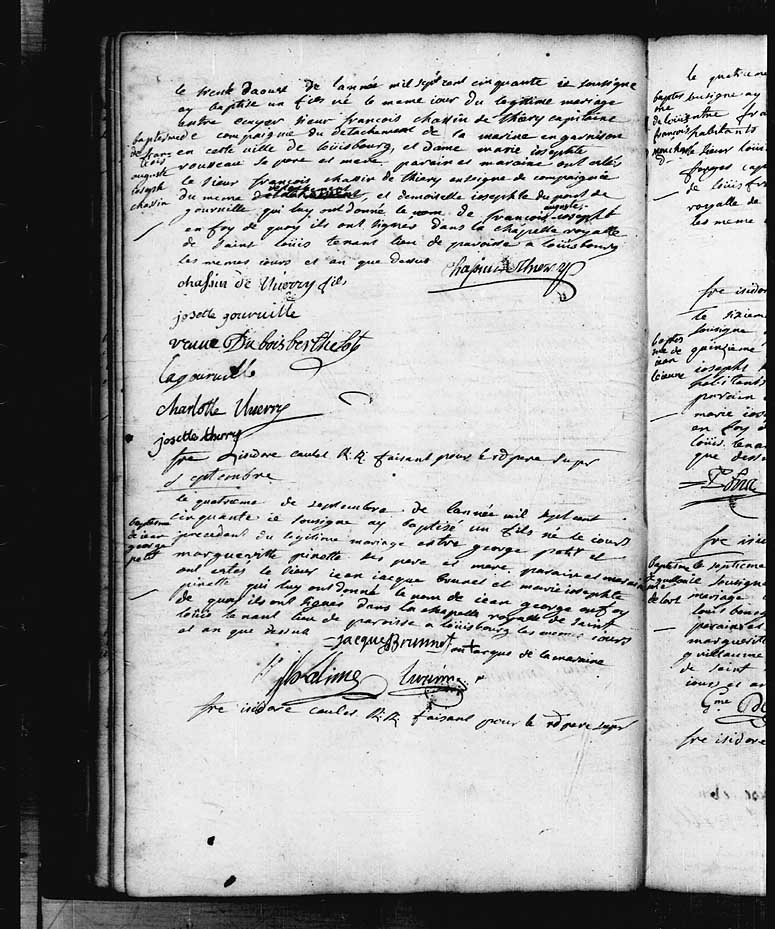 le trente daoust de lannée mil sept cent cinquante ie sousigne
ay baptise un fils né le meme iour du legitime mariage
entre ecuyer sieur françois chassin de thiery capitaine
de compaignie du detachement de la marine en garnison
en cette ville de loüisbourg, et dame marie iosephte
rousseau le pere et mere. parain et maraine ont estés
le sieur françois chassin de thiery enseigne de compaignie
du meme detachement, et demoiselle iosephte du pont de
gourville qui luy ont donné le nom de françois auguste ioseph
en foy de quoy ils ont signes dans la chapelle royalle
de saint loüis tenant lieu de paroisse a loüisbourg
les memes iours et an que dessus
baptesme
de fran
çois
auguste
ioseph
chassin
chassin de thierry
chassin de thierry fils
josette gourville
veuve Duboisberthelot
lagourville
charlotte thierry
josette thierry
fre isidore caulet R. R. faisant pour le rd pere supr
septembre
le quatrieme de septembre de lannée mil sept cent
cinquante ie sousigne ay baptisé un fils né le iour
precedant du legitime mariage entre george petit et
margueritte pinette ses pere et mere. paraine et maraine
ont estés le sieur iean iacque brunet et marie iosephte
pinette qui luy ont donné le nom de iean george en foy
de quoy ils ont signes dans la chapelle royalle de saint
loüis tenant lieu de paroisse a loüisbourg les memes iours
et an que dessus
baptesme
de iean
george
petit
jacque Brunnet
de la marine
fre isidore caulet R. R. faisant pour le rd pere supr
le quatrieme
sousigne ay
françois habitants
le sieur loüis
de loüis
royalle de
les memes
fre isidore
le sixieme
sousigne
quinzieme
iosephs
habitants
parain
marie ios
en foy
loüis tena
que dess
baptes
me de
iean
fre isid
baptesme le septieme
sousigne
mariage
parain et
margueritte
guillaume
de saint
iours et an
fre isidore